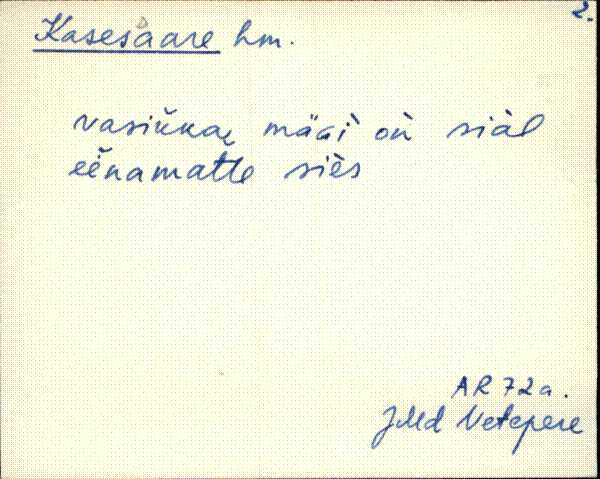 2.
Kasesaare hm.
vasikkae mäGi on siäl
eenamatte sies
AR 72a.
JMd Vetepere